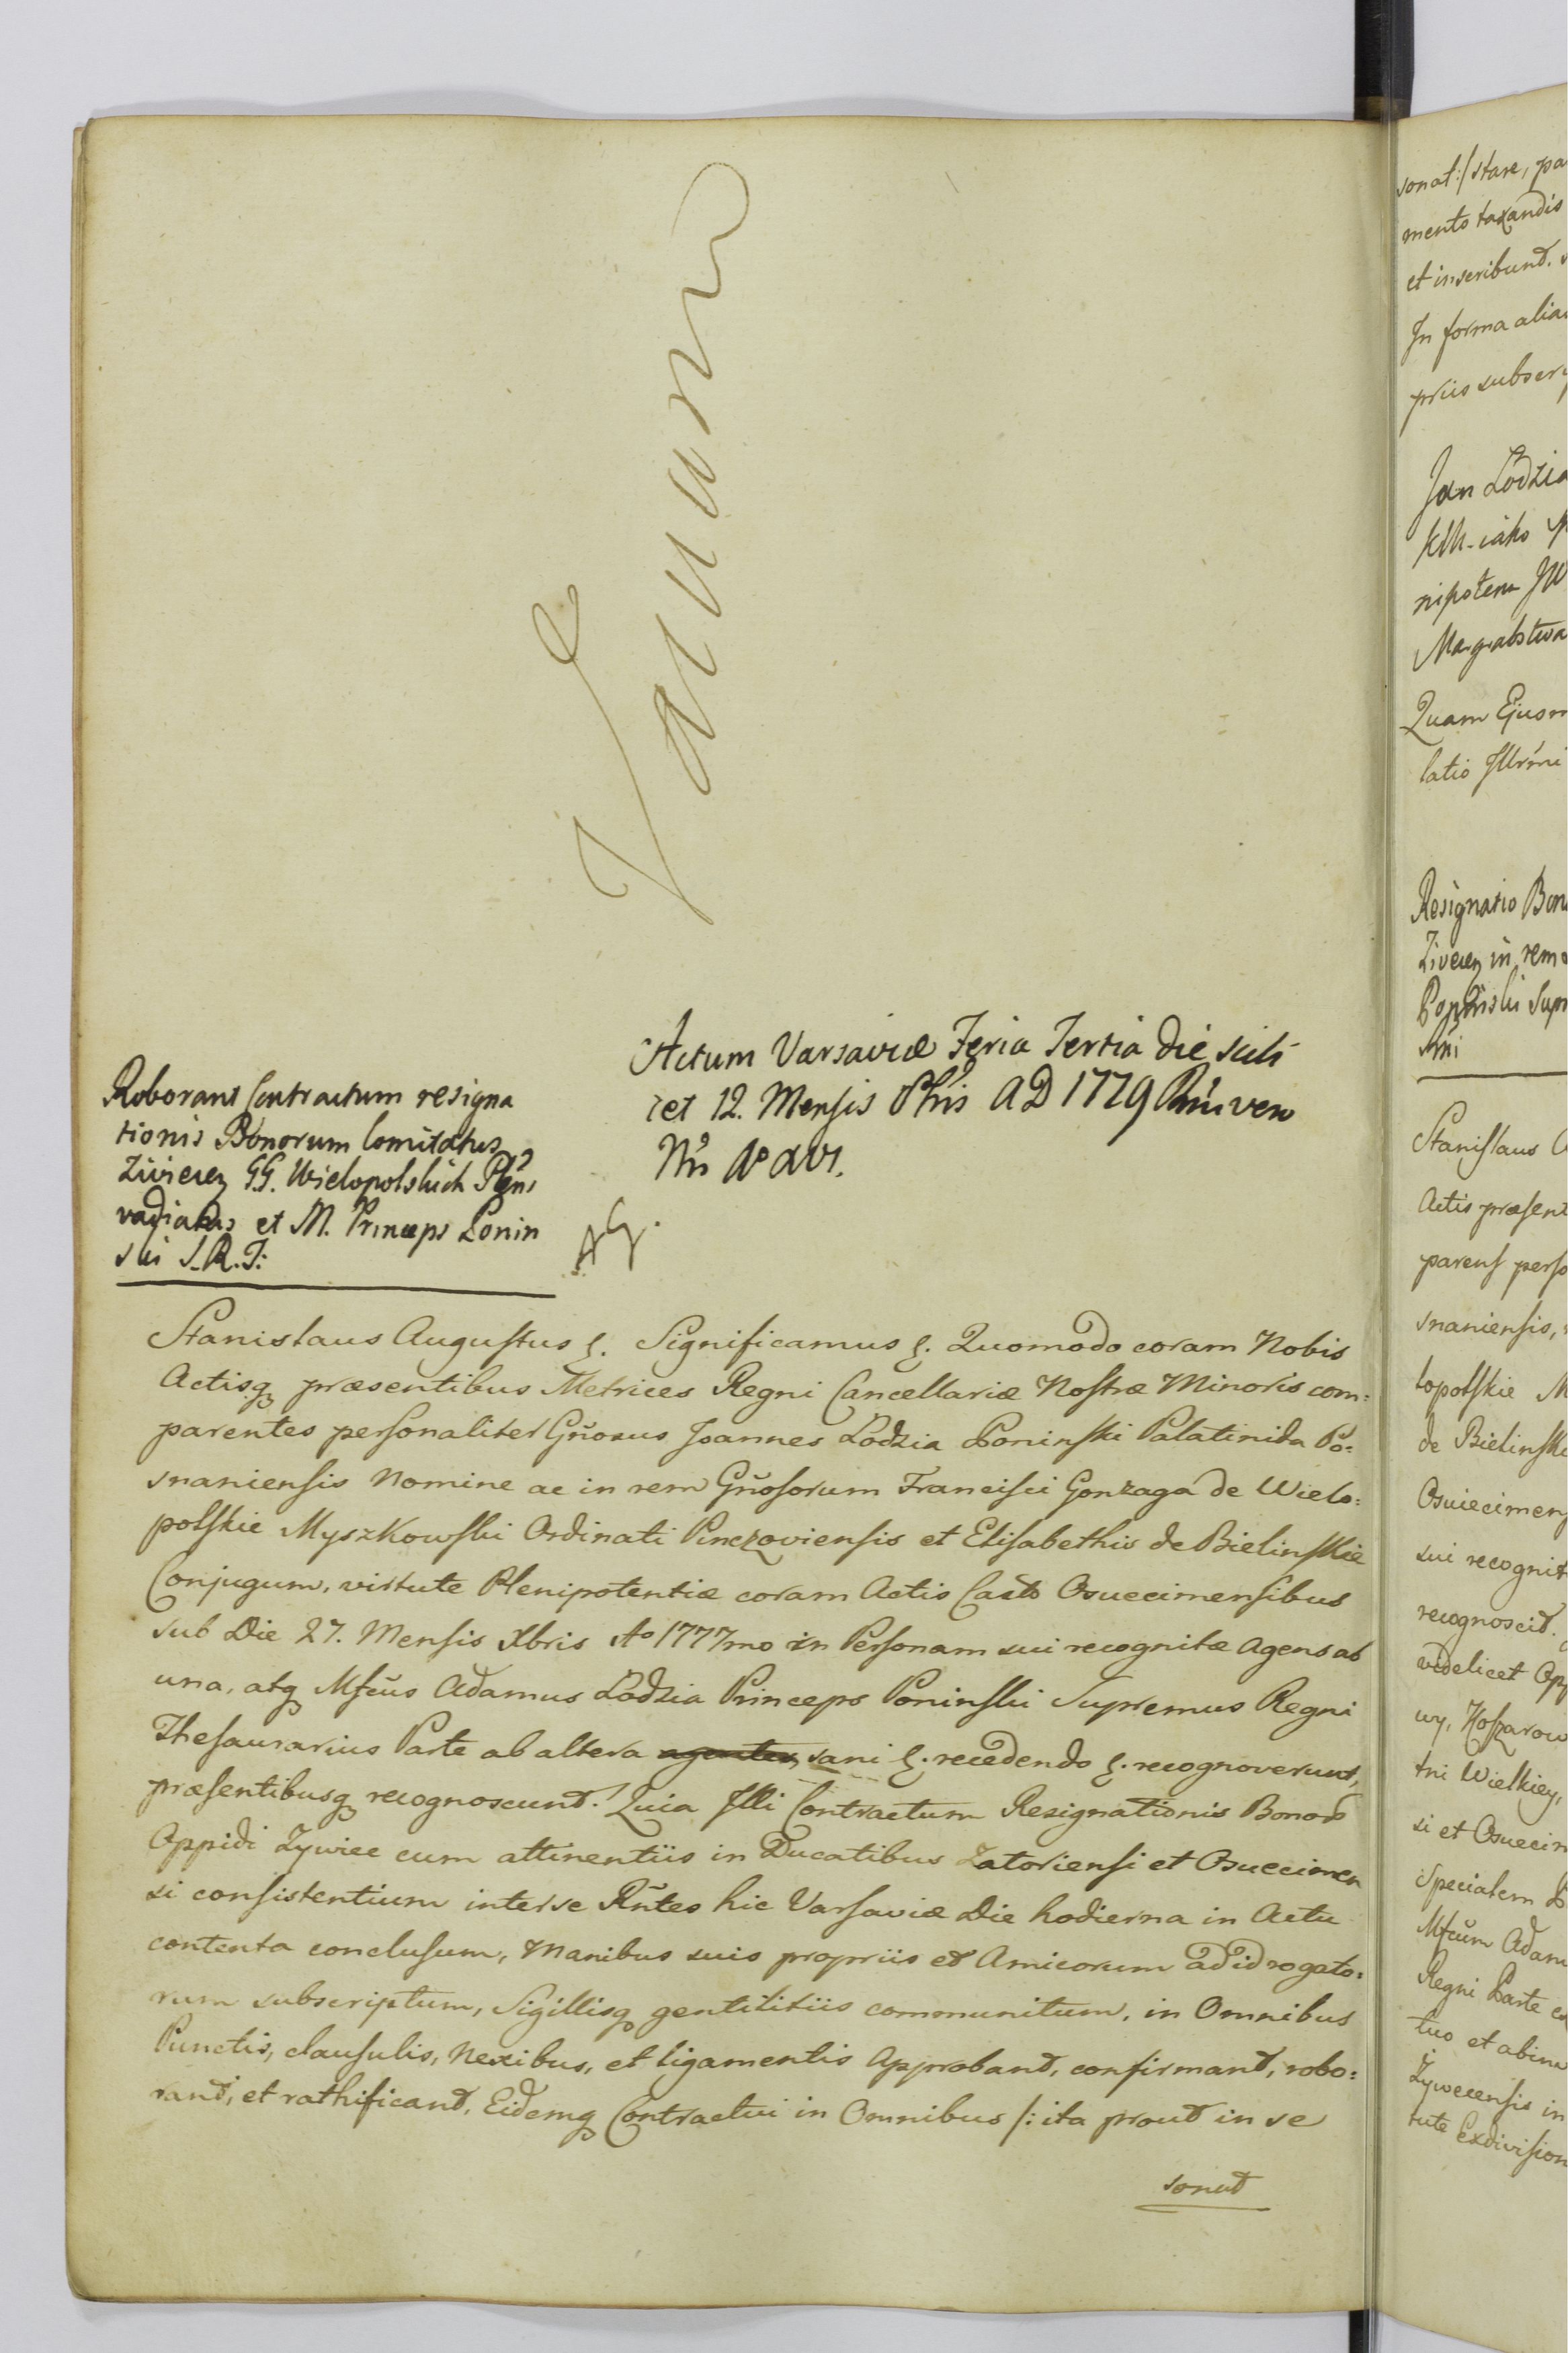 Vacuum
Actum Varsaviæ Feria Tertia die scili
cet 12. Mensis AD 1779 vero
Roborans Contractum resigna
tionis Bonorum Comitatus
Ziviecz G.G. Wielopolskich
et M. Princeps Ponin
ski S.R.T:
Stanislaus Augustus &. Significamus &. Quomodo coram Nobis
Actisq præsentibus Metrices Regni Cancellariæ Nostræ Minoris com:
parentes personaliter Gñosus Joannes Lodzia Poninski Palatinida Po:
snaniensis Nomine ac in rem Gñosorum Francisci Gonzaga de Wielo:
polskie Myszkowski Ordinati Pinczoviensis et Elisabethis de Bielinskie
Conjugum, virtute Plenipotentiæ coram Actis Castr Osuecimensibus
sub Die 27. Mensis Xbris Ao 1777mo in Personam sui recognitæ Agens ab
una, atq Mfcus Adamus Lodzia Princeps Poninski Supremus Regni
Thesaurarius Parte ab altera agentes sani &. recedendo &. recognoverunt,
præsentibusq recognoscunt. Quia Illi Contractum Resignationis Bonor
Oppidi Zywiec cum attinentiis in Ducatibus Zatoriensi et Osuecimen
si consistentium inter se Rñtes hic Varsaviæ Die hodierna in Actu
contenta conclusum, Manibus suis propriis et Amicorum ad id rogato:
rum subscriptum, Sigillisq gentilitiis communitum, in Omnibus
Punctis, clausulis, Nexibus, et ligamentis Approband, confirmand, robo:
rand, et rathificand, Eidemq Contractui in Omnibus /: ita prout in se
sonat
sonat:/ stare, pa
mento taxandis
et inscribund.
In forma alia
priis subscri
Jan Lodzia
KM- iako
nipotem JW
Margrabstwa
Quam Ejusm
latio Illrmi
Resignatio Bon
Ziviecz in rem
Poninski Sup
Stanislaus A
Actis præsent
parens perso
snaniensis,
lopolskie M
de Bielinski
Osuiecimens
sui recognit
recognoscit.
videlicet Opp
wy, Koszarow
tni Wielkiey,
si et Osuecim
Specialem
Mfcum Adam
Regni Parte
tuo et abinu
Zywecensis in
tute Exdivision